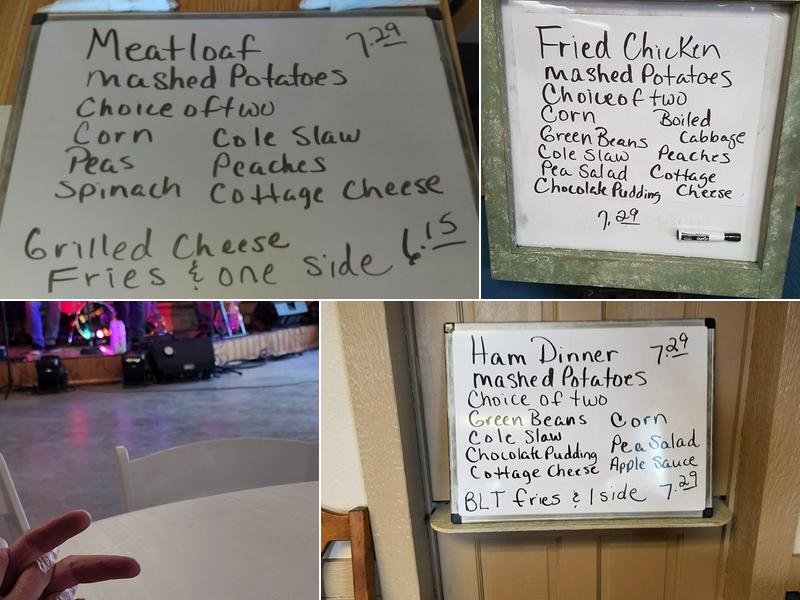 Meatloaf 7.29
mashed Potatoes
Choice of two
Corn Cole Slaw
Peas Peaches
Spinach Cottage Cheese
Grilled Cheese 6.15
Fries & one side
Fried Chicken
mashed Potatoes
Choice of two
Corn Boiled
Green Beans Cabbage
Cole Slaw Peaches
Pea Salad Cottage
Chocolate Pudding Cheese
7.29
Ham Dinner 7.29
mashed Potatoes
Choice of two
Green Beans Corn
Cole Slaw Pea Salad
Chocolate Pudding Apple Sauce
Cottage Cheese
BLT fries & 1 side 7.29